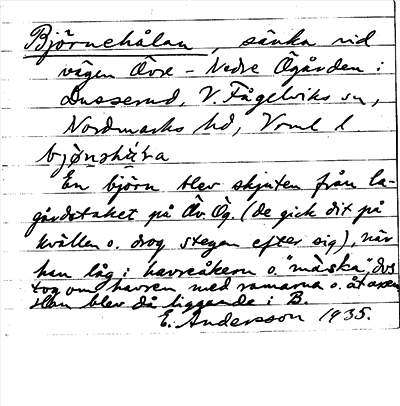 Björnehålan, sänka vid
vägen Övre - Nedre Ögården i
Lusserud, V. Fågelviks sn,
Nordmarks hd, Vrml l.
bjønshåɫa
En björn blev skjuten från la-
gårdstaket på Öv. Ög. (de gick dit på
kvällen o. drog stegen efter sig), när
han låg i havreåkern o. "måska", dvs
tog om havren med ramarna o. åt axen.
Han blev då liggande i B.
E. Andersson 1935.